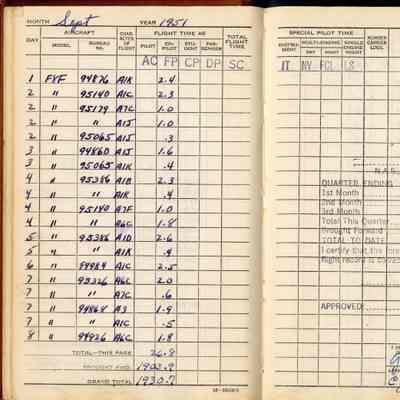 MONTH Sept YEAR 1951
DAY AIRCRAFT MODEL BUREAU NO. CHARACTER OF FLIGHT FLIGHT TIME AS PILOT PASSENGER TOTAL FLIGHT TIME
AC FP CP DP SC
1 FYF 94876 A1K 2.4
2 " 95140 A1C 2.3
2 " 95179 A7C 1.0
2 " " A1J 1.0
2 " 95065 A1J .3
3 " 94860 A1J 1.6
3 " 95065 A1K .4
4 " 95386 A1B 2.3
4 " " A1K .4
4 " 95140 A7F 1.0
4 " " A6C 1.8
5 " 95386 A1D 2.6
5 " " A1R .4
6 " A1C 2.5
7 " 95326 A6C 2.0
7 " " A7C .6
7 " 94868 A3 1.9
7 " " A1C .5
8 " 94926 A6C 1.8
TOTAL—THIS PAGE 26.8
BROUGHT FWD. 1903.9
GRAND TOTAL 1930.7
SPECIAL PILOT TIME
INSTRUMENT MULTI-ENGINE DAY NIGHT SINGLE ENGINE NIGHT
IT NY FCL LS
N.A.S.
QUARTER ENDING
1st Month
2nd Month
3rd Month
Total This Quarter
Brought Forward
TOTAL TO DATE
I certify that the
flight record is
APPROVED: